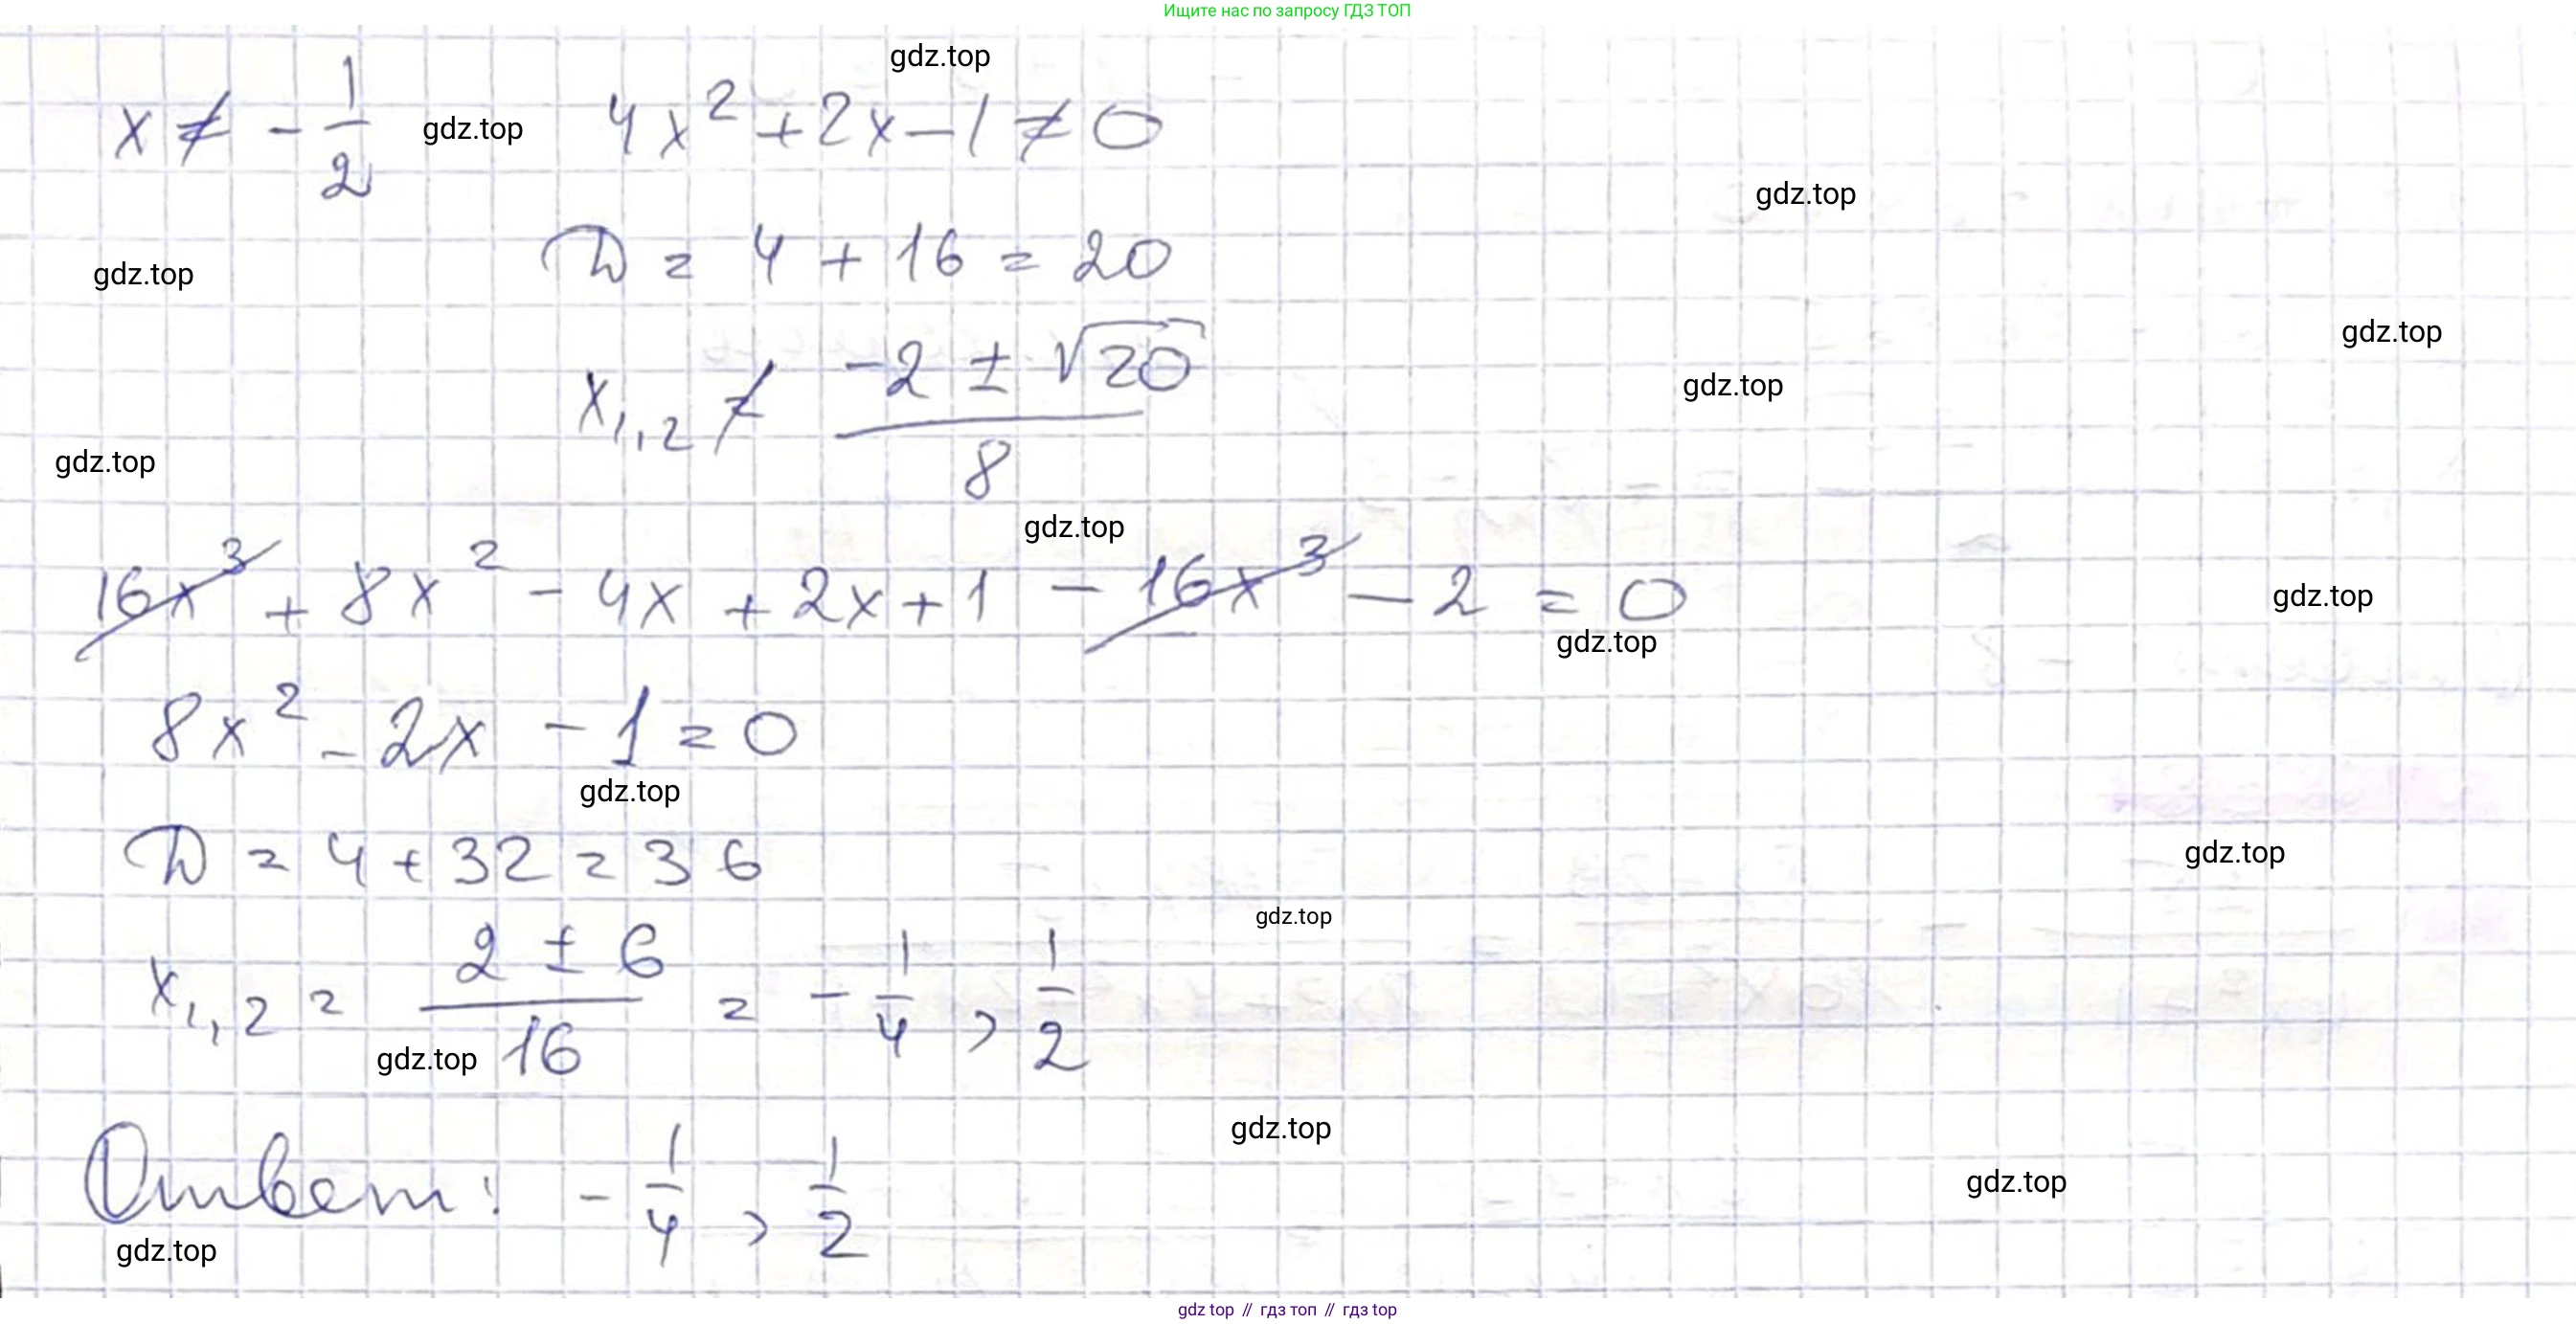 Ищите нас по запросу ГДЗ ТОП
gdz.top
x ≠ -1/2 gdz.top 4x² + 2x - 1 ≠ 0
gdz.top
D = 4 + 16 = 20
gdz.top
gdz.top
x₁,₂ ≠ (-2 ± √20)/8
gdz.top
gdz.top
gdz.top
16x³ + 8x² - 4x + 2x + 1 - 16x³ - 2 = 0
gdz.top
gdz.top
8x² - 2x - 1 = 0
gdz.top
D = 4 + 32 = 36
gdz.top
gdz.top
x₁,₂ = (2 ± 6)/16 = -1/4, 1/2
gdz.top
gdz.top
Ответ: -1/4, 1/2
gdz.top
gdz.top
gdz top // гдз топ // гдз top